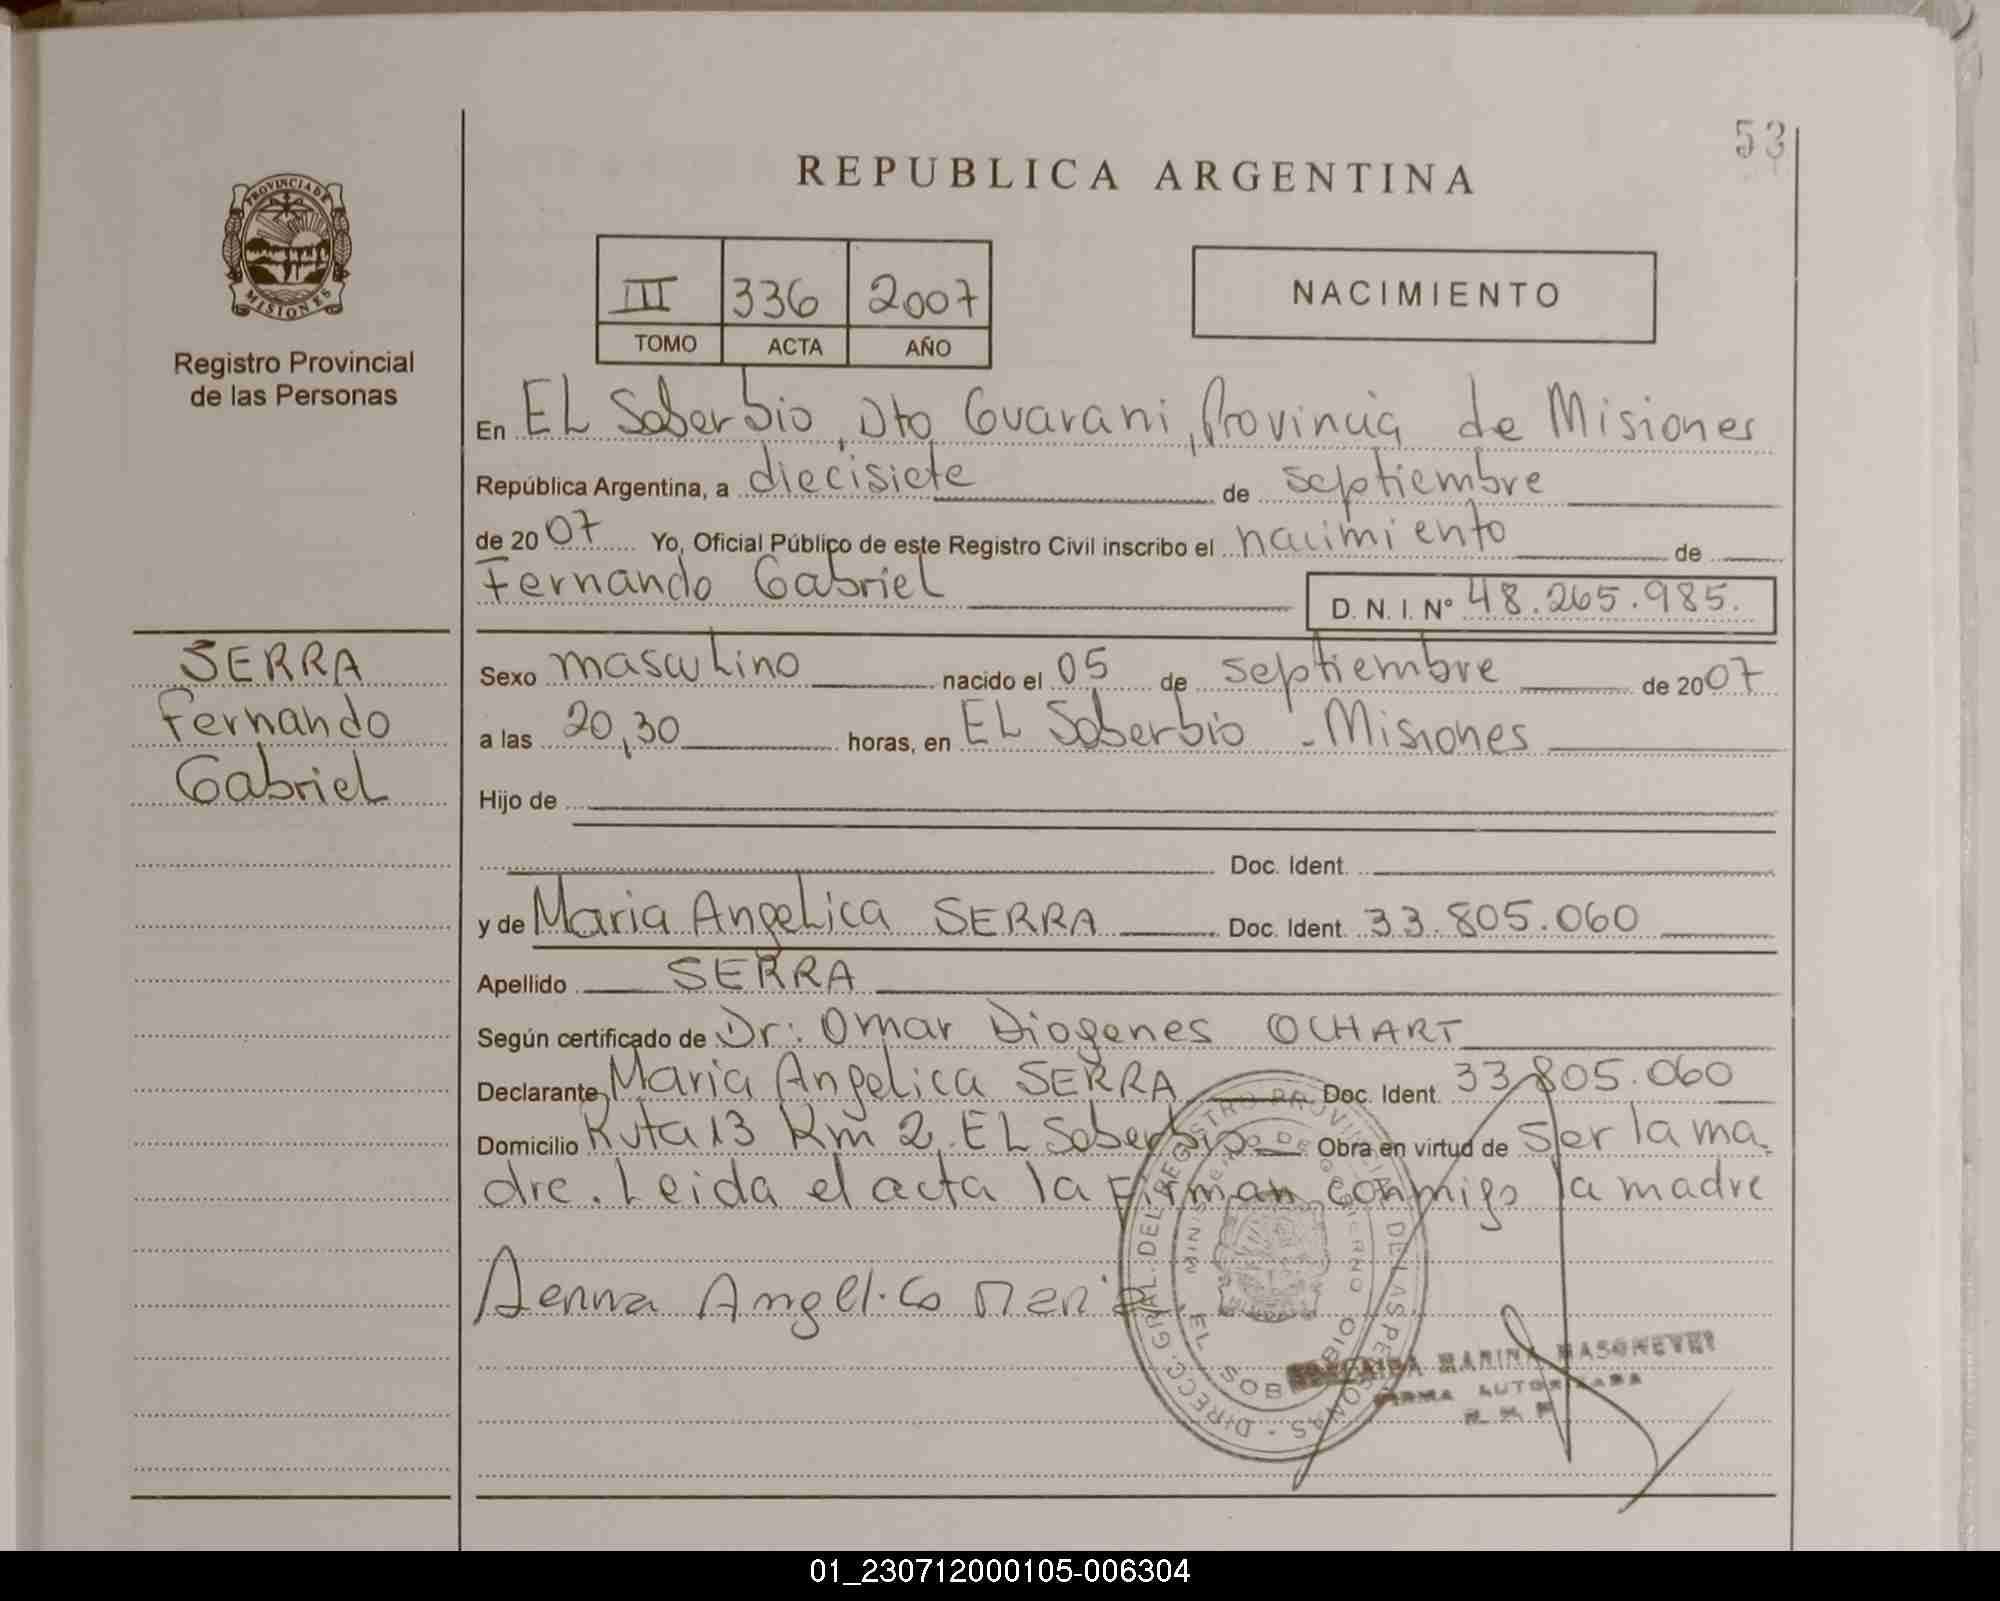 53
REPUBLICA ARGENTINA
PROVINCIA DE
MISIONES
Registro Provincial
de las Personas
III 336 2007
TOMO ACTA AÑO
NACIMIENTO
En EL Soberbio, Dto Guarani, Provincia de Misiones
República Argentina, a diecisiete de septiembre
de 2007 Yo, Oficial Público de este Registro Civil inscribo el nacimiento de
Fernando Gabriel D. N. I. Nº 48.265.985.
SERRA
Fernando
Gabriel
Sexo masculino nacido el 05 de septiembre de 2007
a las 20,30 horas, en EL Soberbio - Misiones
Hijo de
Doc. Ident.
y de Maria Angelica SERRA Doc. Ident. 33.805.060
Apellido SERRA
Según certificado de Dr: Omar Diogenes OCHART
Declarante Maria Angelica SERRA Doc. Ident. 33.805.060
Domicilio Ruta 13 Km 2. EL Soberbio Obra en virtud de ser la ma-
dre. Leida el acta la firman conmigo la madre
Angelica Maria
DIRECC. GRAL. DEL REGISTRO PROVINCIAL DE LAS PERSONAS
MINISTERIO DE GOBIERNO
EL SOBERBIO
MARINA
FIRMA AUTORIZADA
01_230712000105-006304